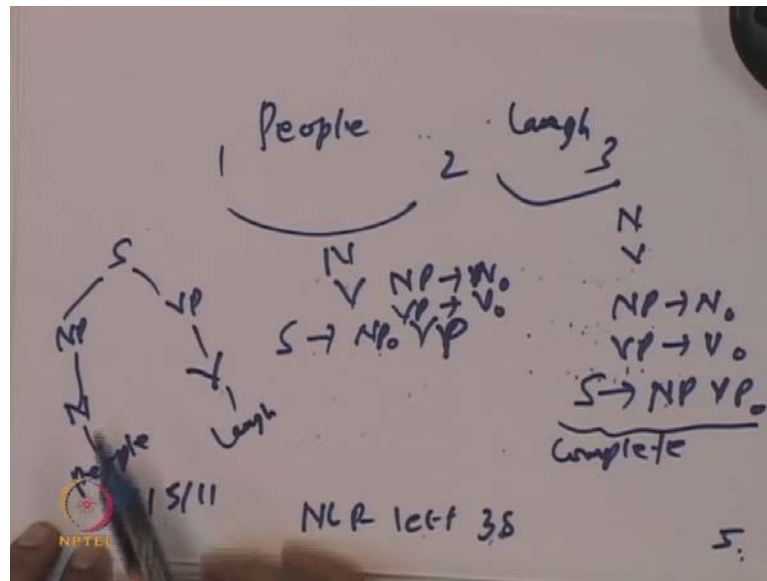 People Laugh
1 2 3
N
V
NP → N.
VP → V.
S → NP. VP
N
V
NP → N.
VP → V.
S → NP VP.
Complete
S
NP VP
N V
People Laugh
15/11
NLP lect 38
5.
NPTEL